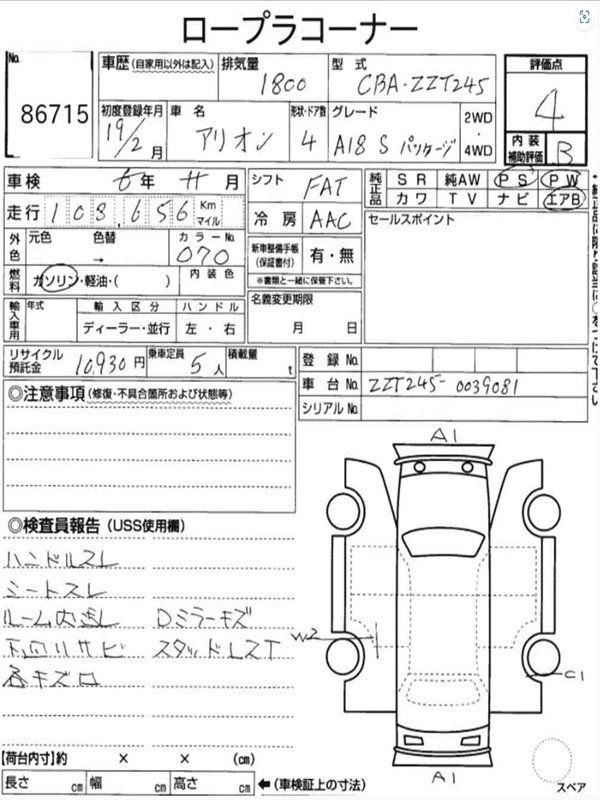 ロープラコーナー
No. 86715
車歴 (自家用以外は記入) 排気量 1800 型式 CBA-ZZT245
評価点 4
初度登録年月 19/2 月 車名 アリオン 形状・ドア数 4 グレード A18 S パッケージ 2WD・4WD
内装補助評価 B
車検 年 月 シフト FAT
純正品 SR 純AW PS PW
カワ TV ナビ エアB
走行 108,656 Km マイル 冷房 AAC
セールスポイント
外色 元色 色替 → カラーNo. 070
新車整備手帳 (保証書付) 有・無
※書類と一緒に保管下さい。
燃料 ガソリン・軽油・( ) 内装色
名義変更期限 月 日
輸入車用 年式 輸入区分 ハンドル
ディーラー・並行 左・右
リサイクル預託金 10,930 円 乗車定員 5 人 積載量 t
登録 No.
車台 No. ZZT245-0039081
シリアル No.
◎注意事項 (修復・不具合箇所および状態等)
◎検査員報告 (USS使用欄)
ハンドルスレ
シートスレ
ルーム内 Dミラーキズ
下回りサビ スタッドレスT
各キズ
A1
W2
C1
A1
【荷台内寸】約 × × (cm)
長さ cm 幅 cm 高さ cm ←(車検証上の寸法)
スペア